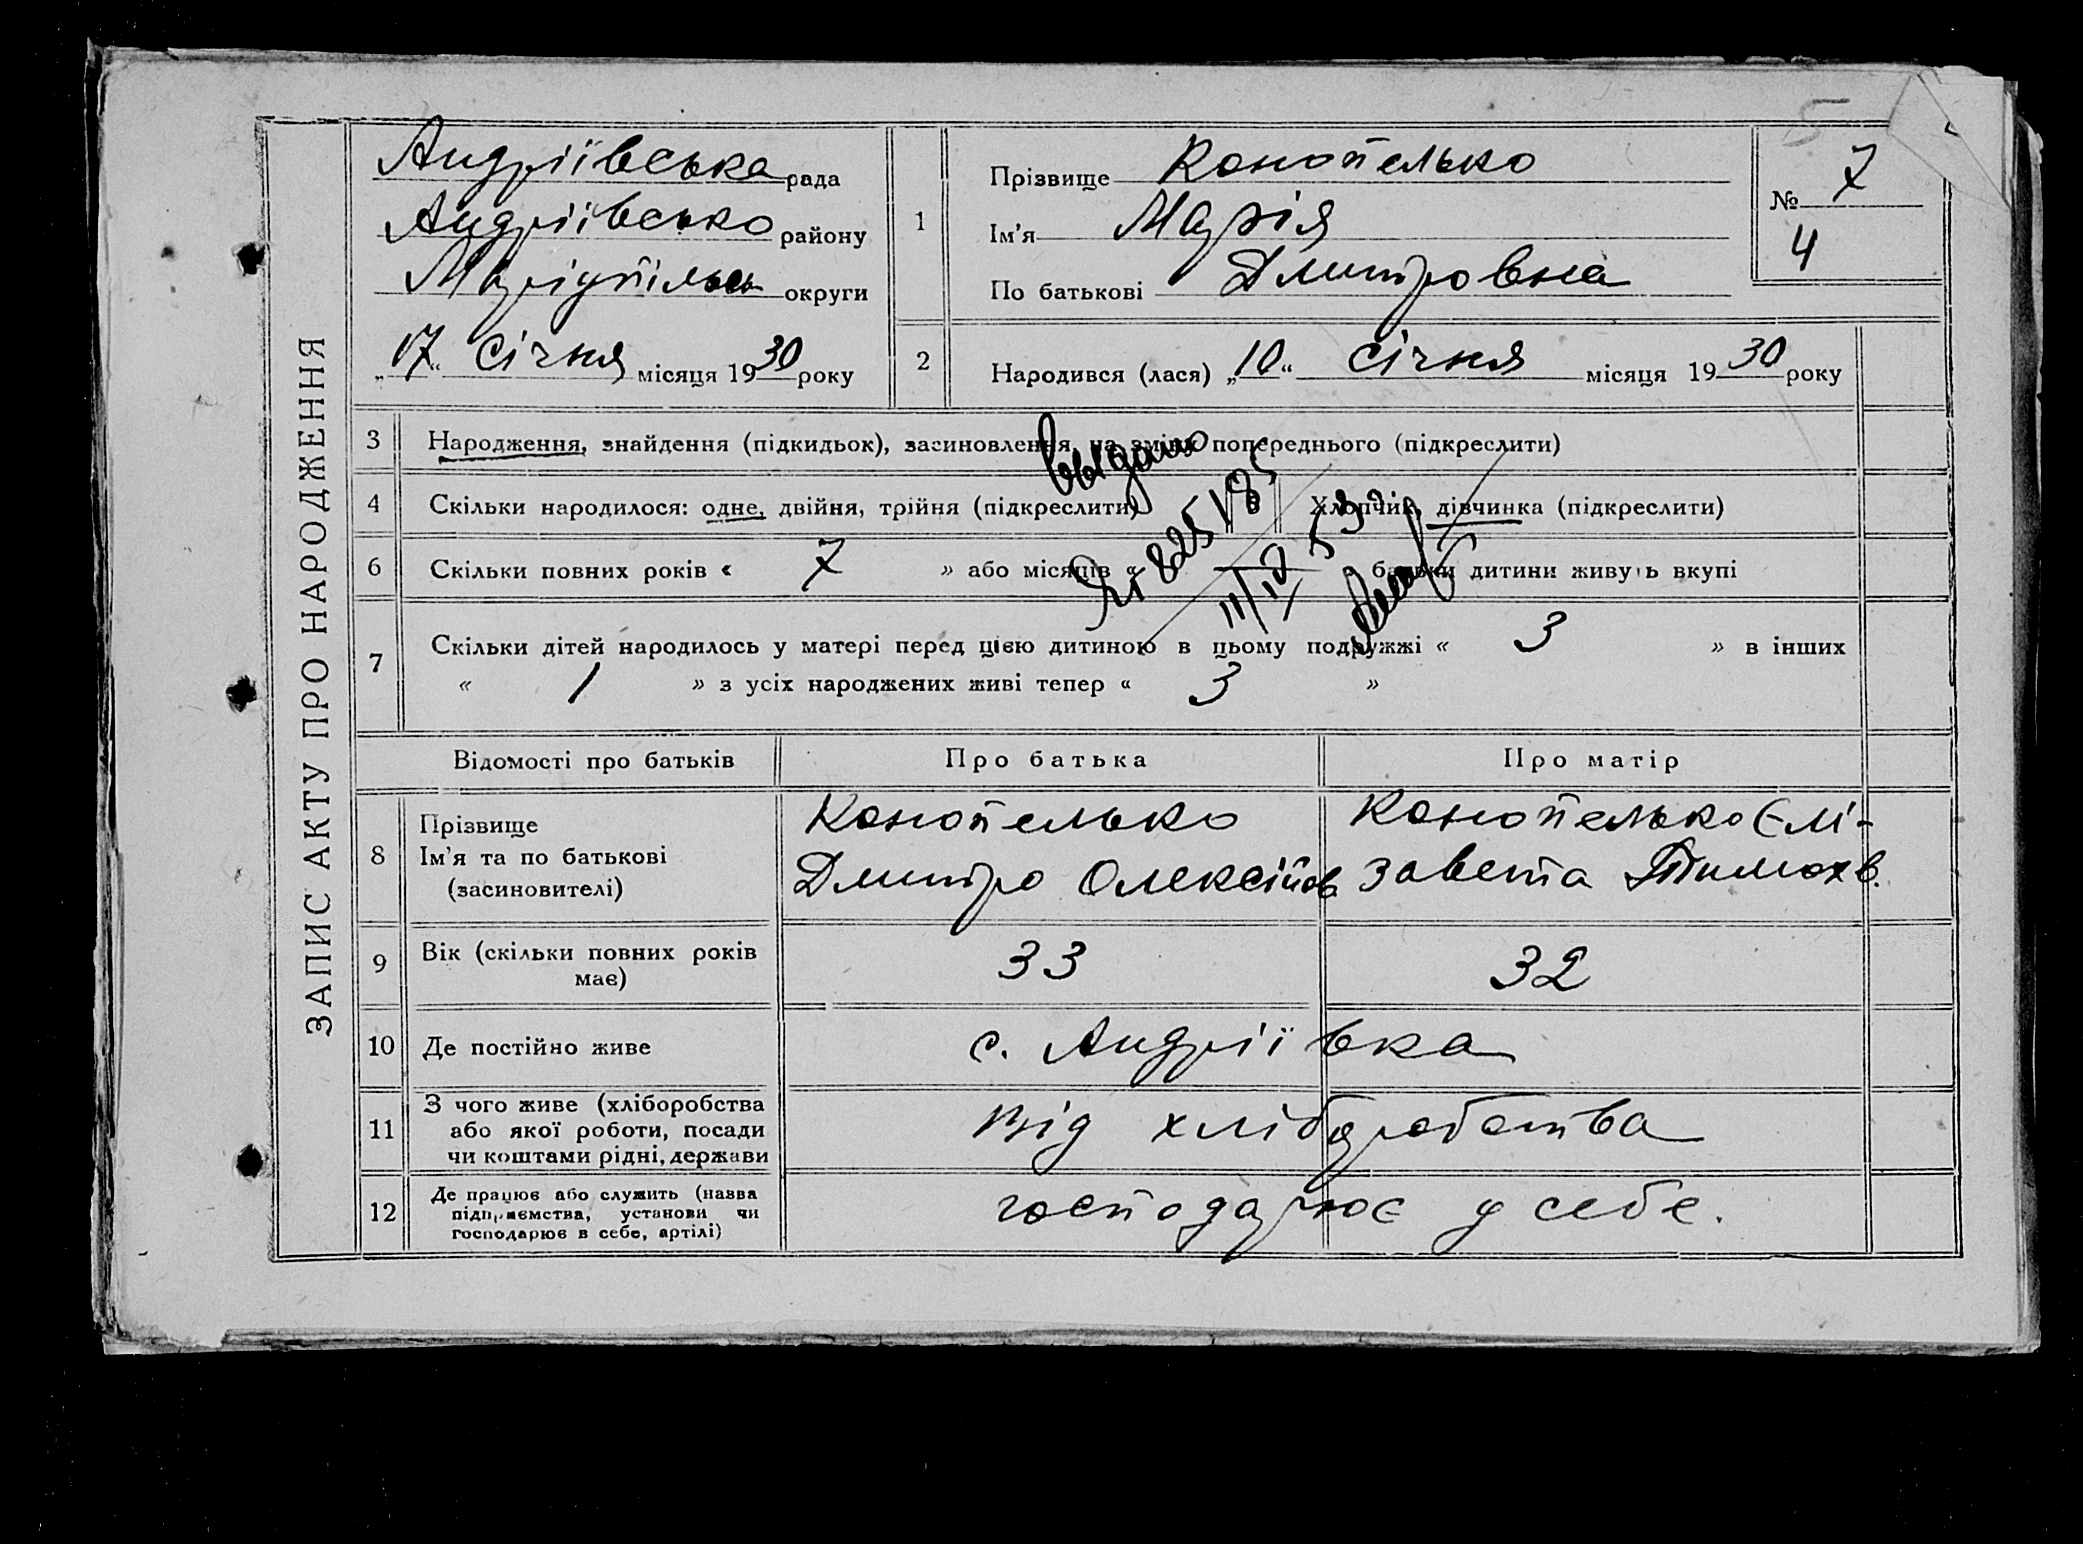 5
ЗАПИС АКТУ ПРО НАРОДЖЕННЯ
Андріївська рада
Андріївсько району
Маріупільськ округи
„17“ Січня місяця 1930 року
1
Прізвище Конопелько
Ім'я Марія
По батькові Дмитровна
№ 7
4
2 Народився (лася) „10“ Січня місяця 1930 року
3 Народження, знайдення (підкидьок), засиновлення, на зміну попереднього (підкреслити)
4 Скільки народилося: одне, двійня, трійня (підкреслити) Хлопчик, дівчинка (підкреслити)
6 Скільки повних років « 7 » або місяців « батьки дитини живуть вкупі
7 Скільки дітей народилось у матері перед цією дитиною в цьому подружжі « 3 » в інших
« 1 » з усіх народжених живі тепер « 3 »
Выдано
11/IV 53
Відомості про батьків Про батька Про матір
8 Прізвище
Ім'я та по батькові
(засиновителі)
Конопелько
Дмитро Олексійов
Конопелько Єлі-
завета Тимохв.
9 Вік (скільки повних років
має)
33 32
10 Де постійно живе с. Андріївка
11 З чого живе (хліборобства
або якої роботи, посади
чи коштами рідні, держави
Від хлібороботва
12 Де працює або служить (назва
підприємства, установи чи
господарює в себе, артілі)
господарює у себе.